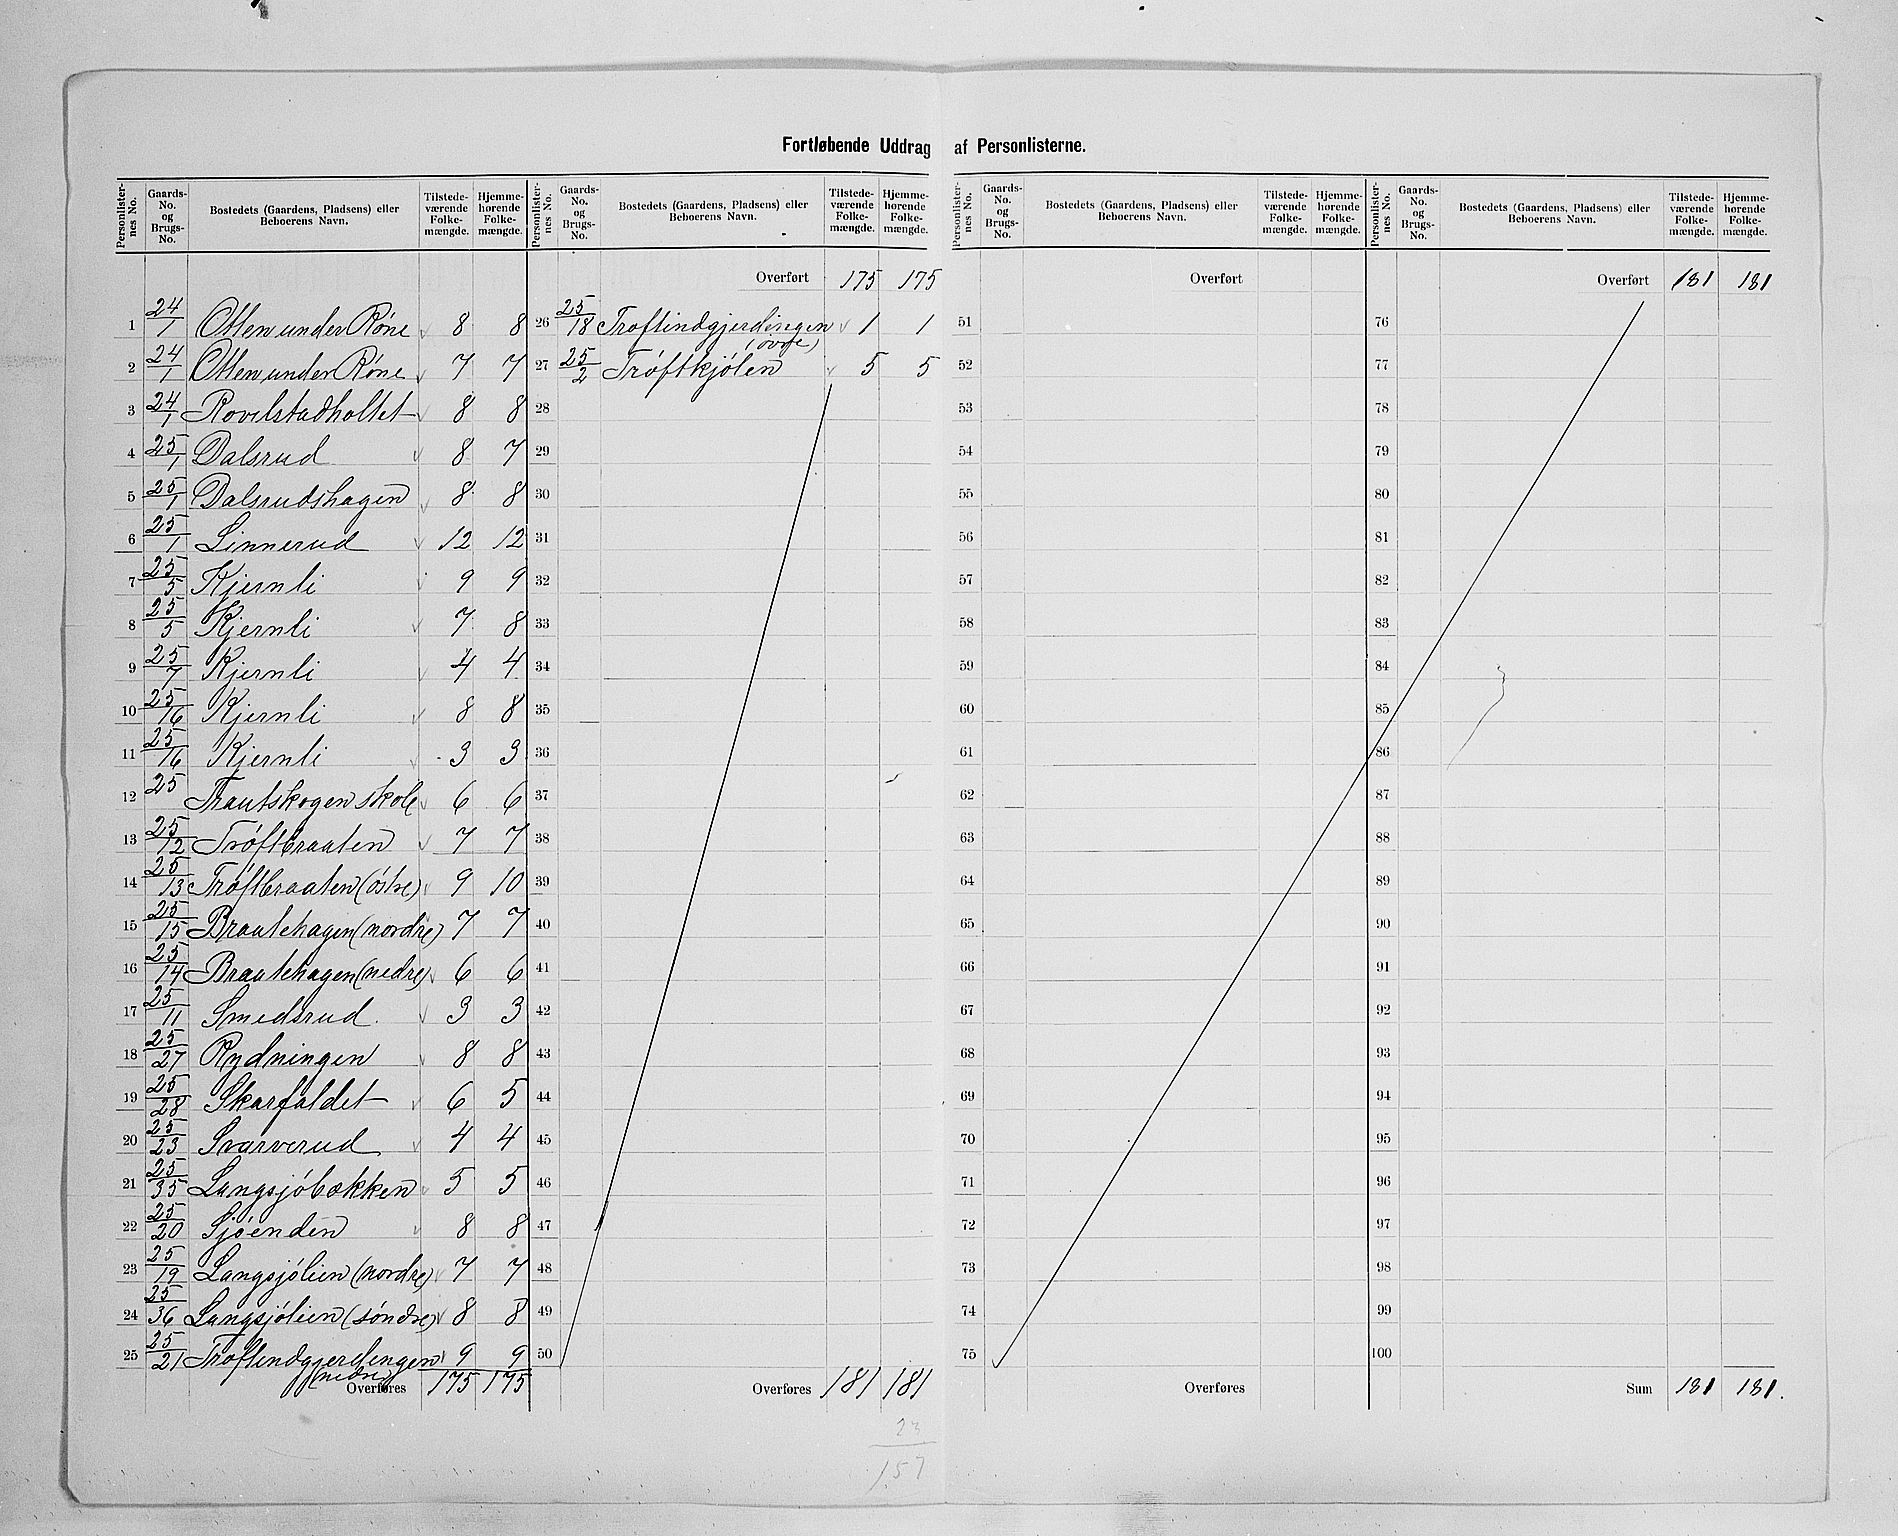 Fortløbende Uddrag af Personlisterne.
Personlister-nes No. | Gaards-No. og Brugs-No. | Bostedets (Gaardens, Pladsens) eller Beboerens Navn. | Tilstede-værende Folke-mængde. | Hjemme-hørende Folke-mængde.
1 24/1 Otlen under Röne 8 8
2 24/1 Otlen under Röne 7 7
3 24/1 Rovilstadholtet 8 8
4 25/1 Dalsrud 8 7
5 25/1 Dalsrudshagen 8 8
6 25/1 Linnerud 12 12
7 25/5 Kjernli 9 9
8 25/5 Kjernli 7 8
9 25/7 Kjernli 4 4
10 25/16 Kjernli 8 8
11 25/16 Kjernli 3 3
12 25 Trautskogen skole 6 6
13 25/12 Tröftbraaten 7 7
14 25/13 Tröftbraaten (östre) 9 10
15 25/15 Braatehagen (nordre) 7 7
16 25/14 Braatehagen (nedre) 6 6
17 25/11 Smedsrud 3 3
18 25/27 Rydningen 8 8
19 25/28 Skarfaldet 6 5
20 25/23 Svarverud 4 4
21 25/35 Langsjöbækken 5 5
22 25/20 Sjöenden 8 8
23 25/19 Langsjölien (nordre) 7 7
24 25/36 Langsjölien (söndre) 8 8
25 25/21 Tröftindgjerdingen 9 9
(nedre)
Overføres 175 175
Personlister-nes No. | Gaards-No. og Brugs-No. | Bostedets (Gaardens, Pladsens) eller Beboerens Navn. | Tilstede-værende Folke-mængde. | Hjemme-hørende Folke-mængde.
Overført 175 175
26 25/18 Tröftindgjerdingen 1 1
(övre)
27 25/2 Tröftkjölen 5 5
28
29
30
31
32
33
34
35
36
37
38
39
40
41
42
43
44
45
46
47
48
49
50
Overføres 181 181
23
157
Personlister-nes No. | Gaards-No. og Brugs-No. | Bostedets (Gaardens, Pladsens) eller Beboerens Navn. | Tilstede-værende Folke-mængde. | Hjemme-hørende Folke-mængde.
Overført
51
52
53
54
55
56
57
58
59
60
61
62
63
64
65
66
67
68
69
70
71
72
73
74
75
Overføres
Personlister-nes No. | Gaards-No. og Brugs-No. | Bostedets (Gaardens, Pladsens) eller Beboerens Navn. | Tilstede-værende Folke-mængde. | Hjemme-hørende Folke-mængde.
Overført 181 181
76
77
78
79
80
81
82
83
84
85
86
87
88
89
90
91
92
93
94
95
96
97
98
99
100
Sum 181 181.